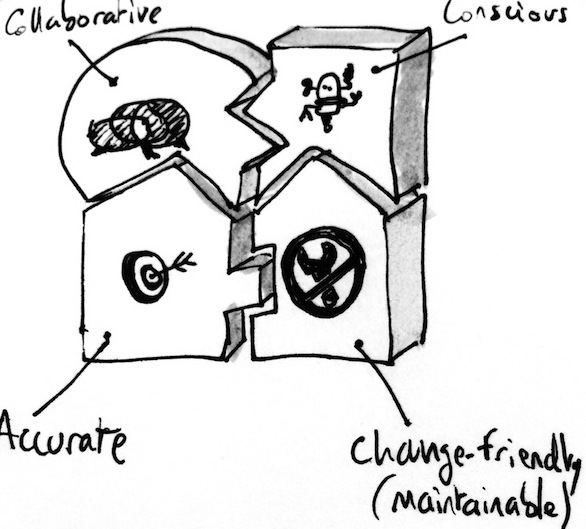 Collaborative
Conscious
Accurate
Change-friendly
(maintainable)